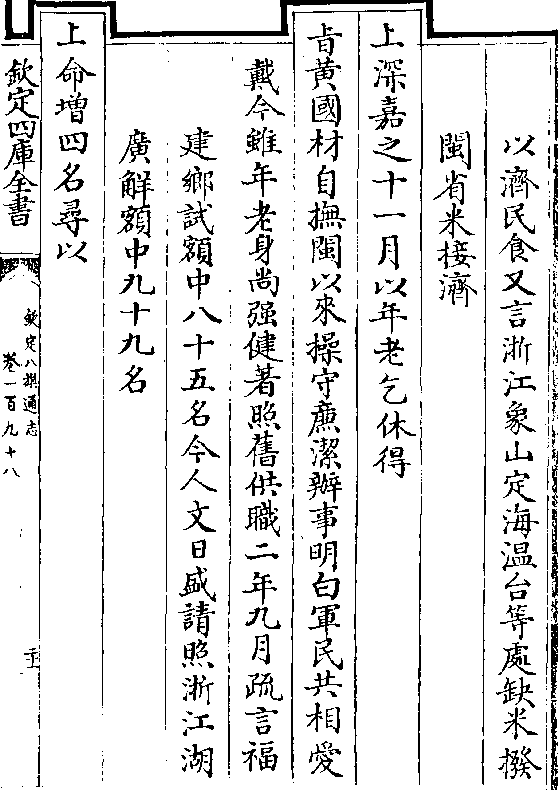 以濟民食又言浙江象山定海温台等處缺米撥
閩省米接濟
上深嘉之十一月以年老乞休得
㫖黄國材自撫閩以來操守㢘潔辦事明白軍民共相愛
戴今雖年老身尚强健著照舊供職二年九月疏言福
建鄉試額中八十五名今人文日盛請照浙江湖
廣解額中九十九名
上命増四名尋以
欽定四庫全書
欽定八旗通志
卷一百九十八